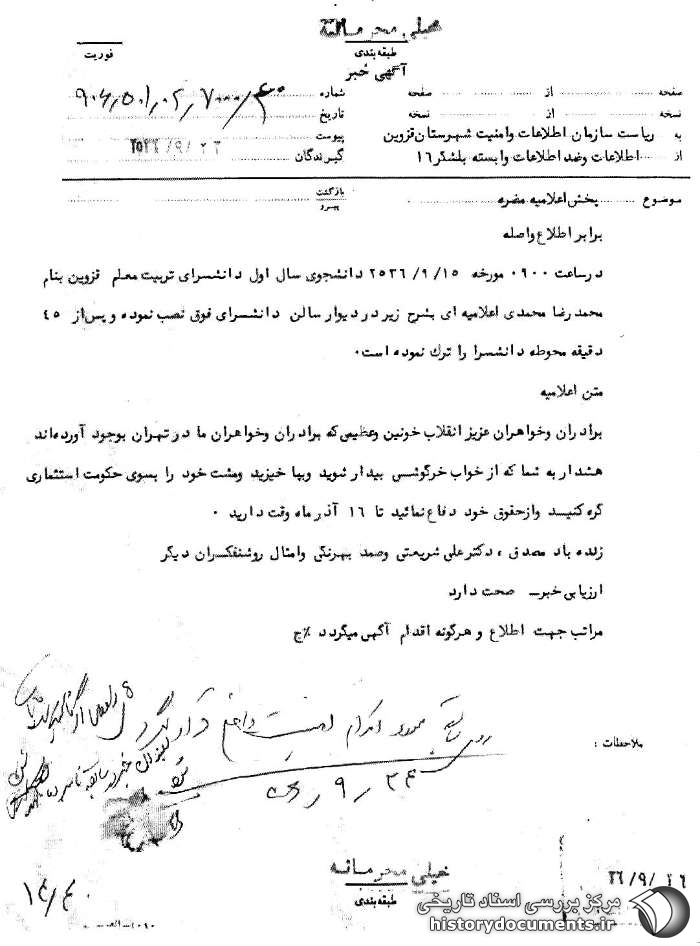 خیلی محرمانه
طبقه‌بندی
فوریت
آگهی خبر
صفحه از صفحه شماره ۹۰۶٫۵۰۱٫۰۲٫۷۰۰۰/۴۰
نسخه از نسخه تاریخ
به ریاست سازمان اطلاعات وامنیت شهرستان قزوین پیوست ۲۵۳۶/۹/۲۳
از اطلاعات وضد اطلاعات وابسته بلشگر ۱۶ گیرندگان
موضوع پخش اعلامیه مضره بازگشت
پیرو
برابر اطلاع واصله
در ساعت ۰۹۰۰ مورخه ۲۵۳۶/۹/۱۵ دانشجوی سال اول دانشسرای تربیت معلم قزوین بنام
محمد رضا محمدی اعلامیه ای بشرح زیر در دیوار سالن دانشسرای فوق نصب نموده و پس از ۴۵
دقیقه محوطه دانشسرا را ترک نموده است۰
متن اعلامیه
برادران وخواهران عزیز انقلاب خونین وعظیمی که برادران وخواهران ما در تهران بوجود آورده‌اند
هشدار به شما که از خواب خرگوشی بیدار شوید وبپا خیزید ومشت خود را بسوی حکومت استثماری
گره کنیسد وازحقوق خود دفاع نمائید تا ۱۶ آذر ماه وقت دارید ۰
زنده باد مصدق ، دکترعلی شریعتی وصمد بهرنگی وامثال روشنفکسران دیگر
ارزیابی خبر ـ صحت دارد
مراتب جهت اطلاع و هرگونه اقدام آگهی میگردد %ج
ملاحظات :
روی سابقه اقدام امنیت داخلی قرار گیرد
۹٫۲۴
۱۴/۴۰
خیلی محرمانه
طبقه‌بندی
۳۶/۹/۲۶
مرکز بررسی اسناد تاریخی
historydocuments.ir